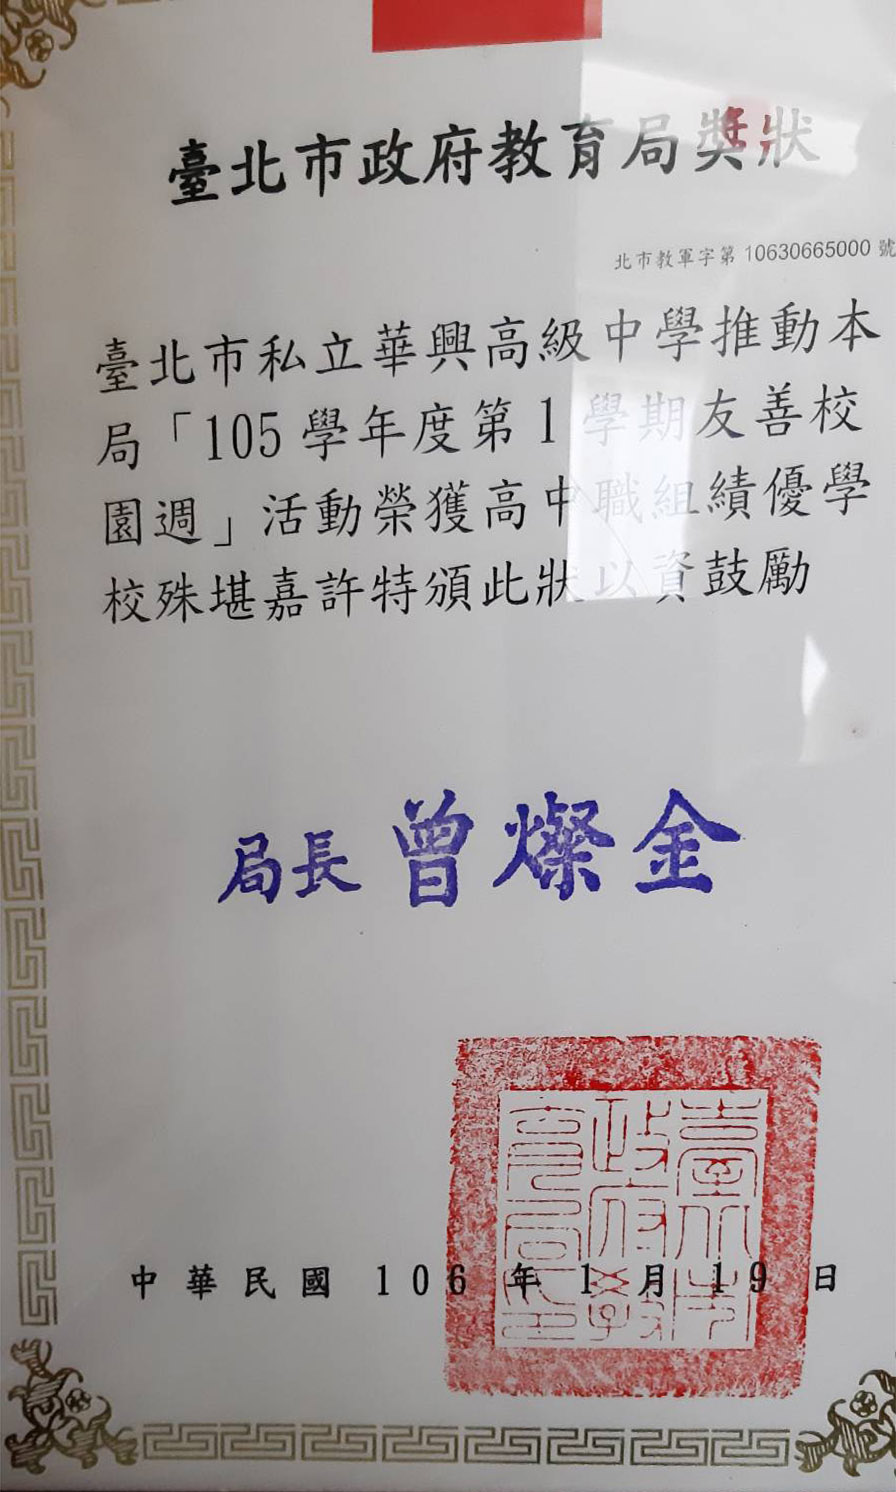 臺北市政府教育局獎狀
北市教軍字第 10630665000 號
臺北市私立華興高級中學推動本
局「105 學年度第 1 學期友善校
園週」活動榮獲高中職組績優學
校殊堪嘉許特頒此狀以資鼓勵
局長 曾燦金
臺北市政府教育局印
中華民國 106 年 1 月 19 日